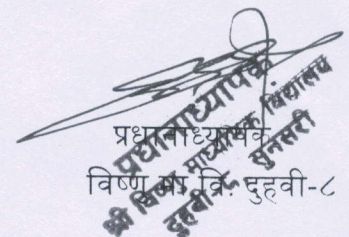 प्रधानाध्यापक
विष्णु मा.वि. दुहवी-८
प्रधानाध्यापक
श्री विष्णु माध्यमिक विद्यालय
दुहवी - ८ सुनसरी